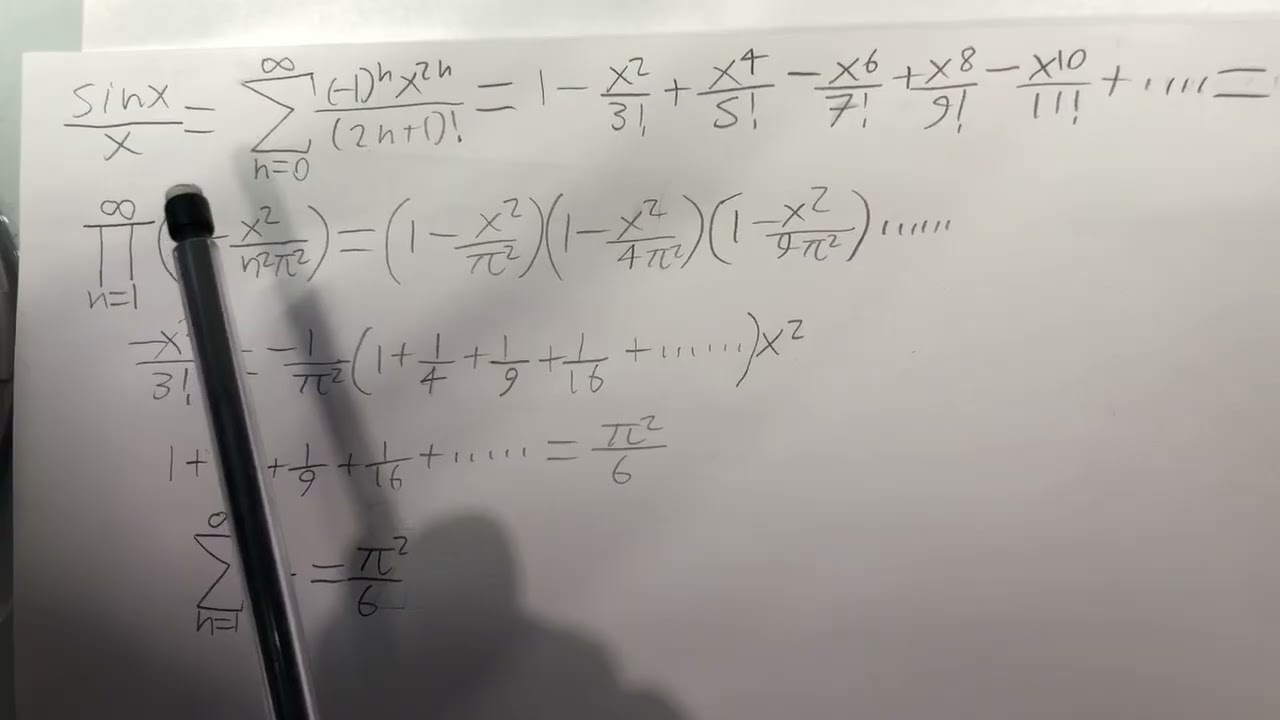 sinx/x = ∞∑n=0 (-1)ⁿx²ⁿ/(2n+1)! = 1 - x²/3! + x⁴/5! - x⁶/7! + x⁸/9! - x¹⁰/11! + ..... =
∞∏n=1 ( - x²/n²π²) = (1 - x²/π²)(1 - x²/4π²)(1 - x²/9π²)......
-x/3! = -1/π²(1 + 1/4 + 1/9 + 1/16 + .......)x²
1 + + 1/9 + 1/16 + ...... = π²/6
∑n=1 = π²/6